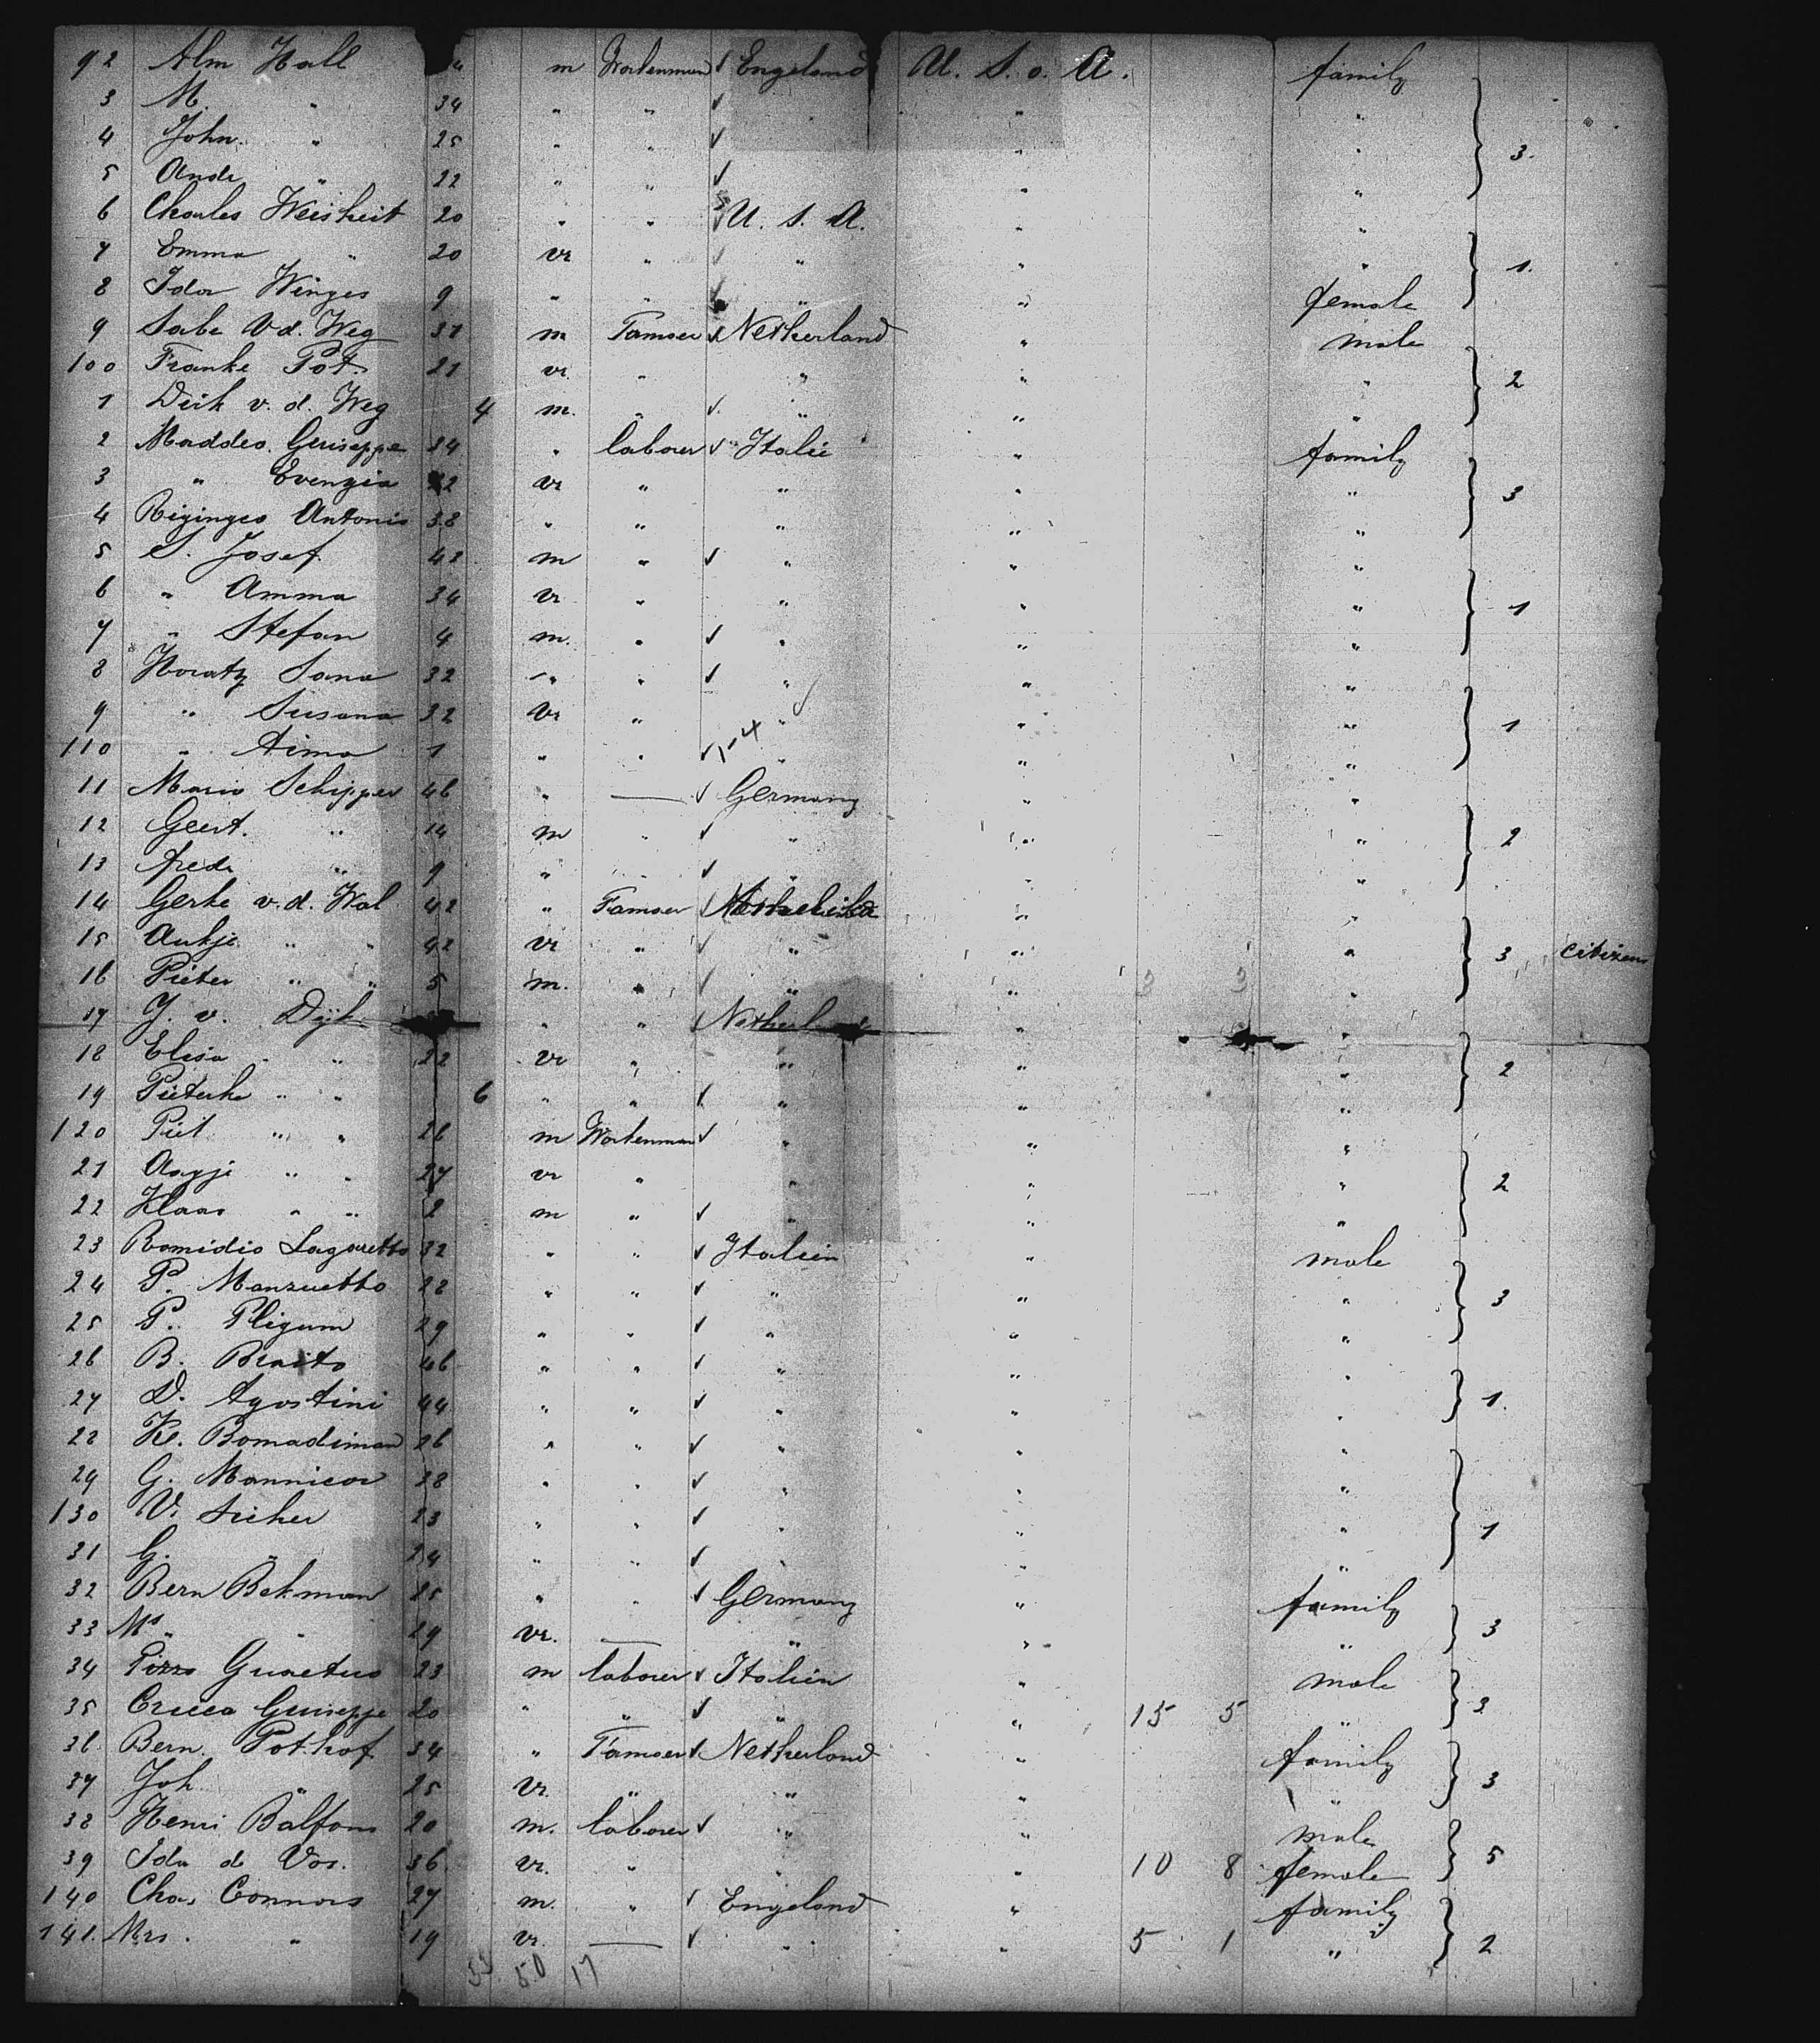 92 Alm Hall m Workenman ✓ Engeland U. S. o. A. family
3 M. " 34 " " ✓ " "
4 John " 25 " " ✓ " " 3.
5 Ande " 22 " " ✓ " "
6 Charles Weisheit 20 " " ✓ U. S. A. " "
7 Emma " 20 vr " ✓ " " " 1.
8 Ida Winges 9 " " ✓ " " female
9 Sabe v d. Weg 31 m Famoer ✓ Netherland " male
100 Franke Pot. 21 vr. " " " " 2
1 Dirk v. d. Weg 4 m. " ✓ " " "
2 Maddeo. Guiseppe 34 " laborer ✓ Italie " family
3 " Evengia 22 vr " " " " 3
4 Riginges Antonio 38 " " " " "
5 S. Josef 42 m " ✓ " " "
6 " Amma 34 vr " " " " 1
7 " Stefan 4 m. " ✓ " " "
8 Horatz Sana 32 " " ✓ " " "
9 " Susana 32 vr " " " " 1
110 " Aima 1 " " ✓ 1-4 " " "
11 Maria Schipper 46 " — ✓ Germany " "
12 Geert. " 14 m " ✓ " " " 2
13 frede " 9 " " ✓ " " "
14 Gerke v. d. Wal 42 " Famoer ✓ " "
15 Aukje " " 42 vr " ✓ " " " 3 citizens
16 Pieter " " 5 m. " ✓ " " 3 3 "
17 J. v. Dijk " " ✓ Netherland " "
18 Elisa " " 22 vr " " " " 2
19 Pieterke " " 6 " " ✓ " " "
120 Piet " " 26 m Workenman ✓ " " "
21 Aagje " " 27 vr " " " " 2
22 Klaas " " 2 m " ✓ " " "
23 Romidio Lagaretto 32 " " ✓ Italien " male
24 P. Manzuetto 28 " " ✓ " " " 3
25 P. Pligum 29 " " ✓ " " "
26 B. Braito 46 " " ✓ " " "
27 D. Agostini 44 " " ✓ " " " 1.
28 K. Bomadiman 26 " " ✓ " " "
29 G. Mannicor 38 " " ✓ " " "
130 V. Sicher 23 " " ✓ " " " 1
31 G. " 24 " " ✓ " " "
32 Bern Bekman 25 " " ✓ Germany " family
33 Ms " " 29 vr. — " " " 3
34 Pizzo Guaetus 23 m laborer ✓ Italien " male
35 Crucca Guiseppe 20 " " ✓ " " 15 5 " 3
36 Bern. Pothof 34 " Famoer ✓ Netherland " family
37 Joh " 25 vr. " " " " 3
38 Henri Balfour 20 m. laborer ✓ " " male
39 Ida de Vos. 36 vr. " " " 10 8 female 5
140 Chas Connors 27 m. " ✓ Engeland " family
141. Mrs. " 19 vr. — ✓ " " 5 1 " 2
33 50 17